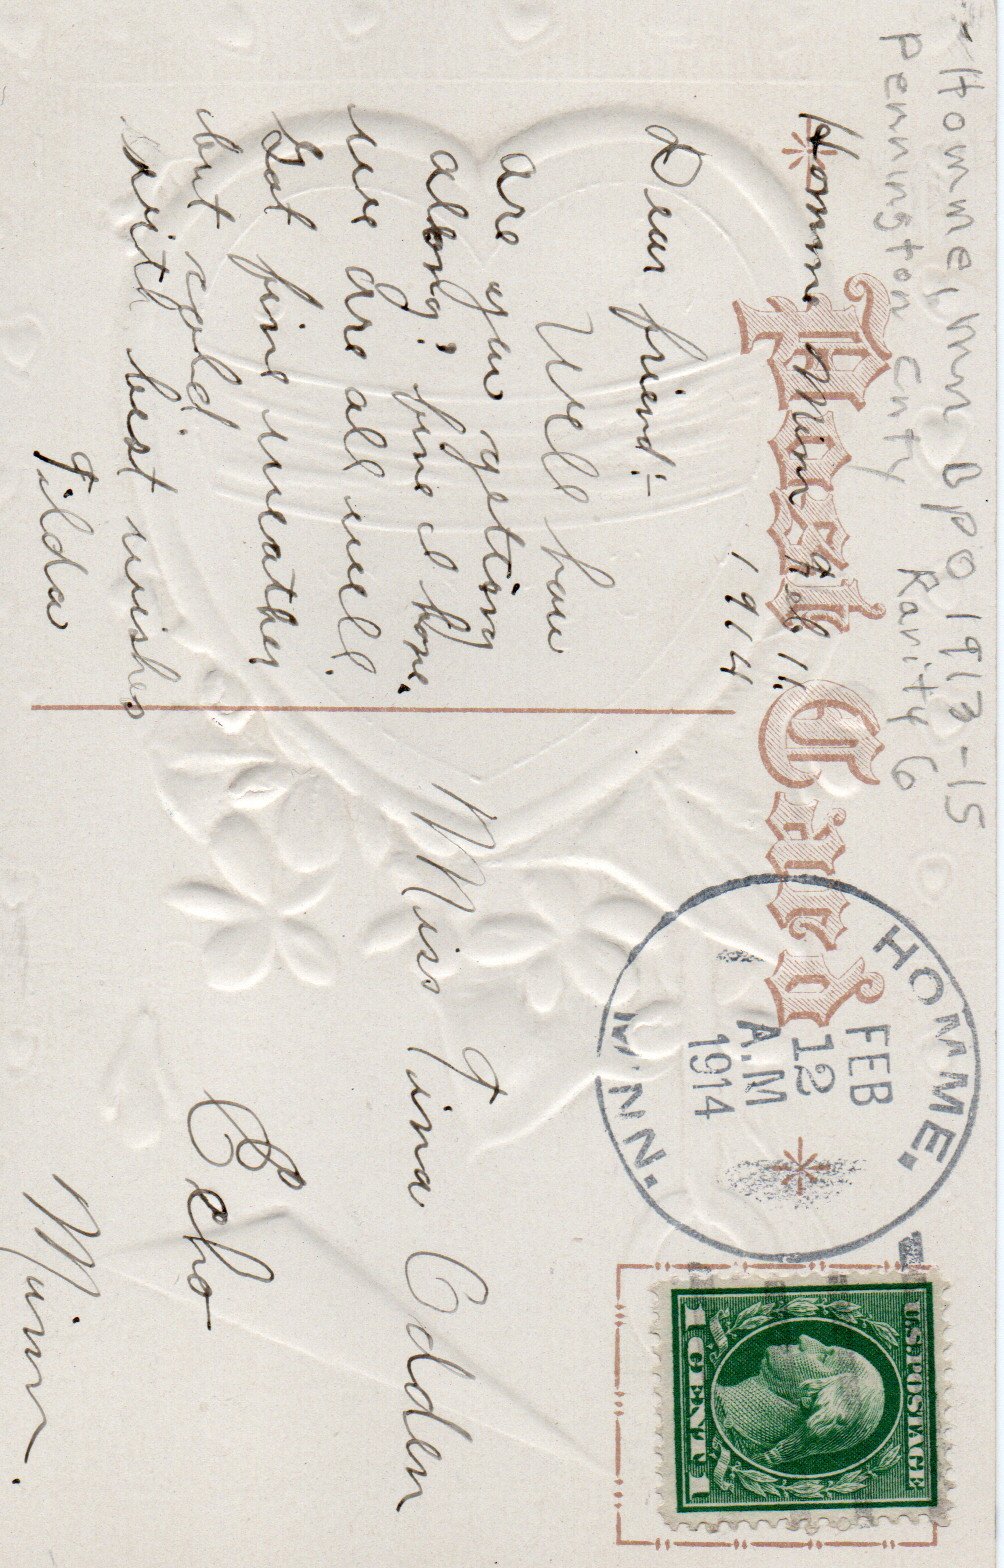 Homme, Mn DPO 1913-15
Pennington Cnty Rarity 6
Post Card
Homme Minn Feb 11,
1914
Dear friend:-
Well how
are you getting
along? fine I hope.
we are all well.
Got fine weather
but cold.
with best wishes
Tilda
HOMME.
MINN.
FEB
12
A.M
1914
U.S. POSTAGE
1 CENT 1
Miss Tina Odden
Echo
Minn.